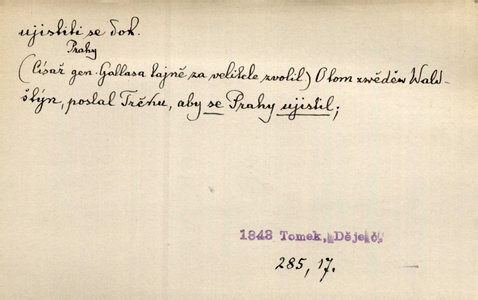 ujistiti se dok.
Prahy
(Císař gen. Gallasa tajně za velitele zvolil) O tom zwěděw Wald-
štýn, poslal Trčku, aby se Prahy ujistil;
1843 Tomek, Děje č.
285, 17.